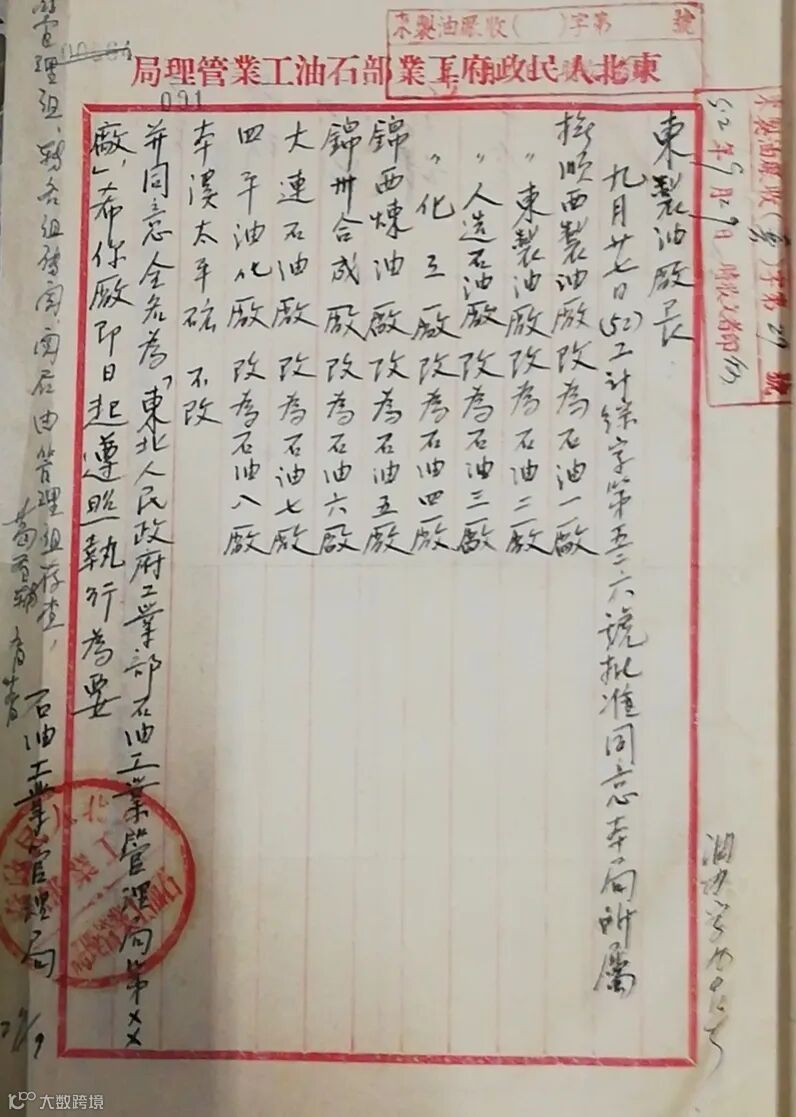 東製油厰收(　)字第　號
東北人民政府工業部石油工業管理局
091
東製油厰收( )字第29號
52年9月29日
東製油廠長
九月廿七日(52)工計綜字第五二六號批准同意本局所屬
撫順西製油廠改為石油一廠
〃東製油廠改為石油二廠
〃人造石油廠改為石油三廠
〃化工廠改為石油四廠
錦西煉油廠改為石油五廠
錦州合成廠改為石油六廠
大連石油廠改為石油七廠
四平油化廠改為石油八廠
本溪太平硫不改
并同意全名為「東北人民政府工業部石油工業管理局第××
廠」希你廠即日起遵照執行為要
石油工業管理局
管理組、轉各組傳閱、閱后由管理組存查,
大数跨境